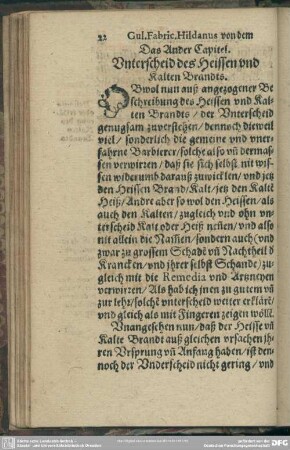 22 Gul. Fabric. Hildanus von dem
Das Ander Capitel.
Vnterscheid des Heissen vnd
Kalten Brandts.
Bwol nun auß angezogener Be
schreibung des Heissen vnd Kal
ten Brandts / der Vnterscheid
genugsam zuverstehen / dennoch dieweil
viel / sonderlich die gemeine vnd vner-
fahrne Barbierer / solche also vñ dermaſ-
sen verwirren / daß sie sich selbst nit wiſ-
sen widerumb darauß zuwicklen / vnd jetz
den Heissen Brand / Kalt / jetz den Kaltē
Heiß / Andre aber so wol den Heissen / als
auch den Kalten / zugleich vnd ohn vn-
terscheid Kalt oder Heiß neñen / vnd also
nit allein die Namen / sondern auch (vnd
zwar zu grossem Schadē vñ Nachtheil d
Krancken / vnd jhrer selbst Schande / zu-
gleich mit die Remedia vnd Artzneyen
verwirren / Als hab ich jnen zu gutem vñ
zur lehr / solchē vnterscheid weiter erklärē /
vnd gleich als mit Fingeren zeigen wöllē.
Vnangesehen nun / daß der Heisse vñ
Kalte Brandt auß gleichen vrsachen jh-
ren Vrsprung vñ Anfang haben / ist den-
noch der Vnderscheid nicht gering / vnd